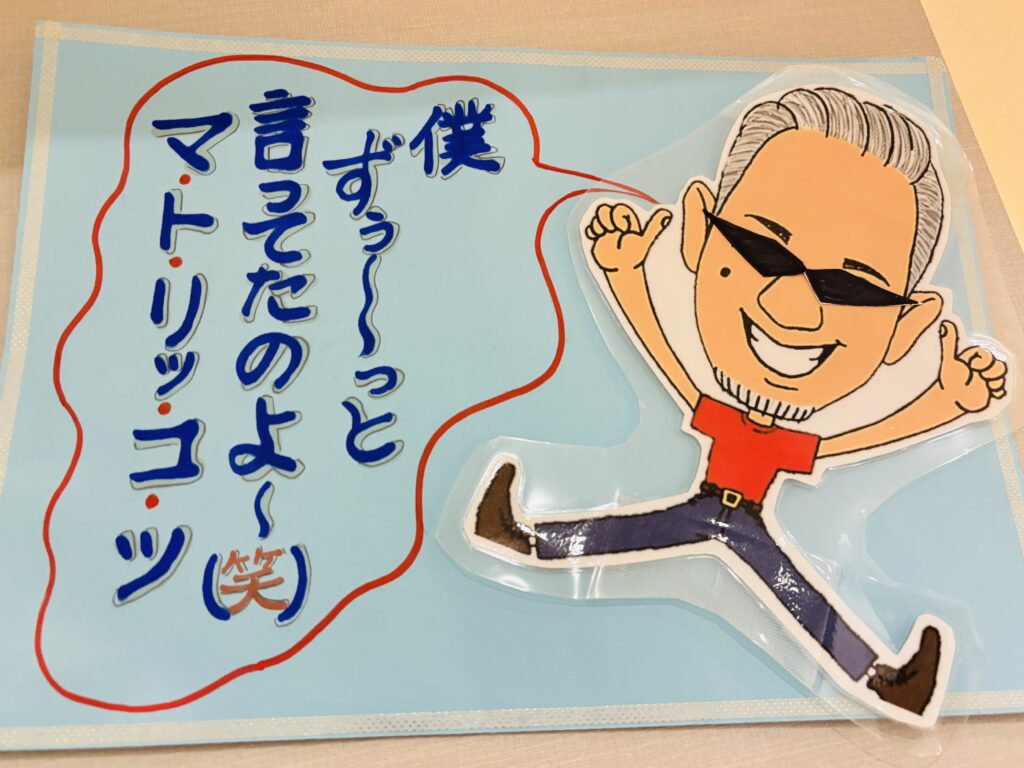 僕
ずぅ〜〜っと
言ってたのよ〜(笑)
マ・ト・リッ・コ・ツ